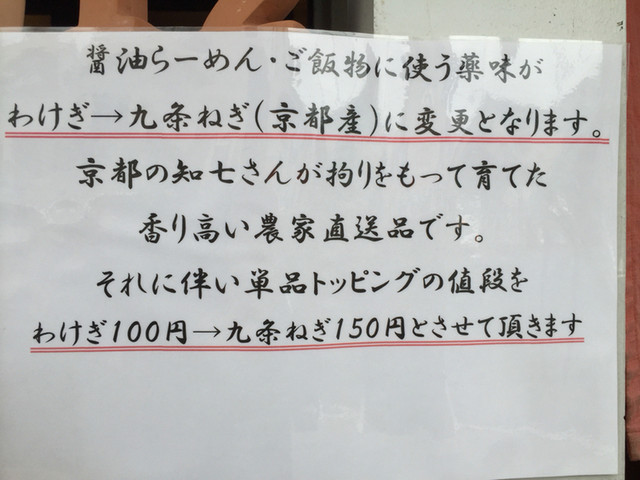 醤油らーめん・ご飯物に使う薬味が
わけぎ→九条ねぎ(京都産)に変更となります。
京都の知七さんが拘りをもって育てた
香り高い農家直送品です。
それに伴い単品トッピングの値段を
わけぎ100円→九条ねぎ150円とさせて頂きます